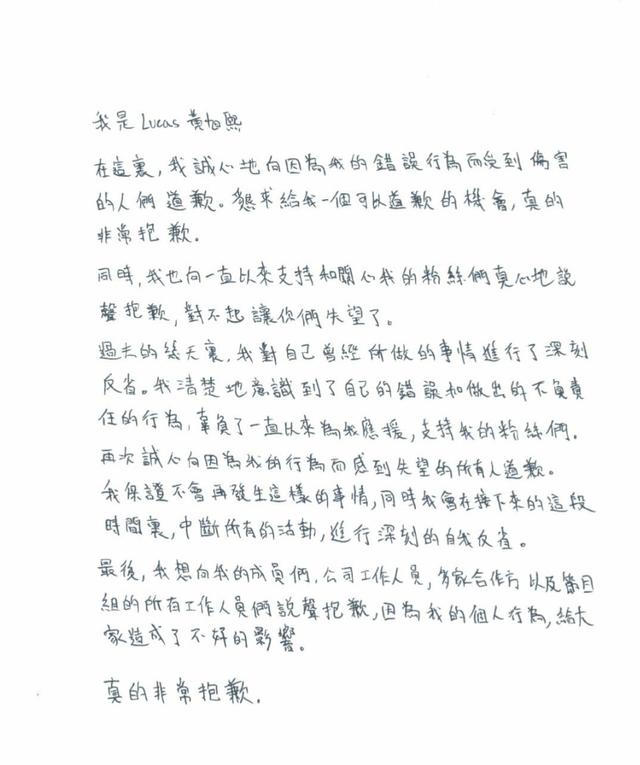 我是 Lucas 黃旭熙
在這裏, 我誠心地向因為我的錯誤行為而受到傷害
的人們道歉。懇求給我一個可以道歉的機會, 真的
非常抱歉.
同時, 我也向一直以來支持和關心我的粉絲們真心地說
聲抱歉, 對不起讓你們失望了。
過去的幾天裏, 我對自己曾經所做的事情進行了深刻
反省。我清楚地意識到了自己的錯誤和做出的不負責
任的行為, 辜負了一直以來為我應援, 支持我的粉絲們.
再次誠心向因為我的行為而感到失望的所有人道歉。
我保證不會再發生這樣的事情, 同時我會在接下來的這段
時間裏, 中斷所有的活動, 進行深刻的自我反省。
最後, 我想向我的成員們, 公司工作人員, 多家合作方以及節目
組的所有工作人員們說聲抱歉, 因為我的個人行為, 給大
家造成了不好的影響。
真的非常抱歉.